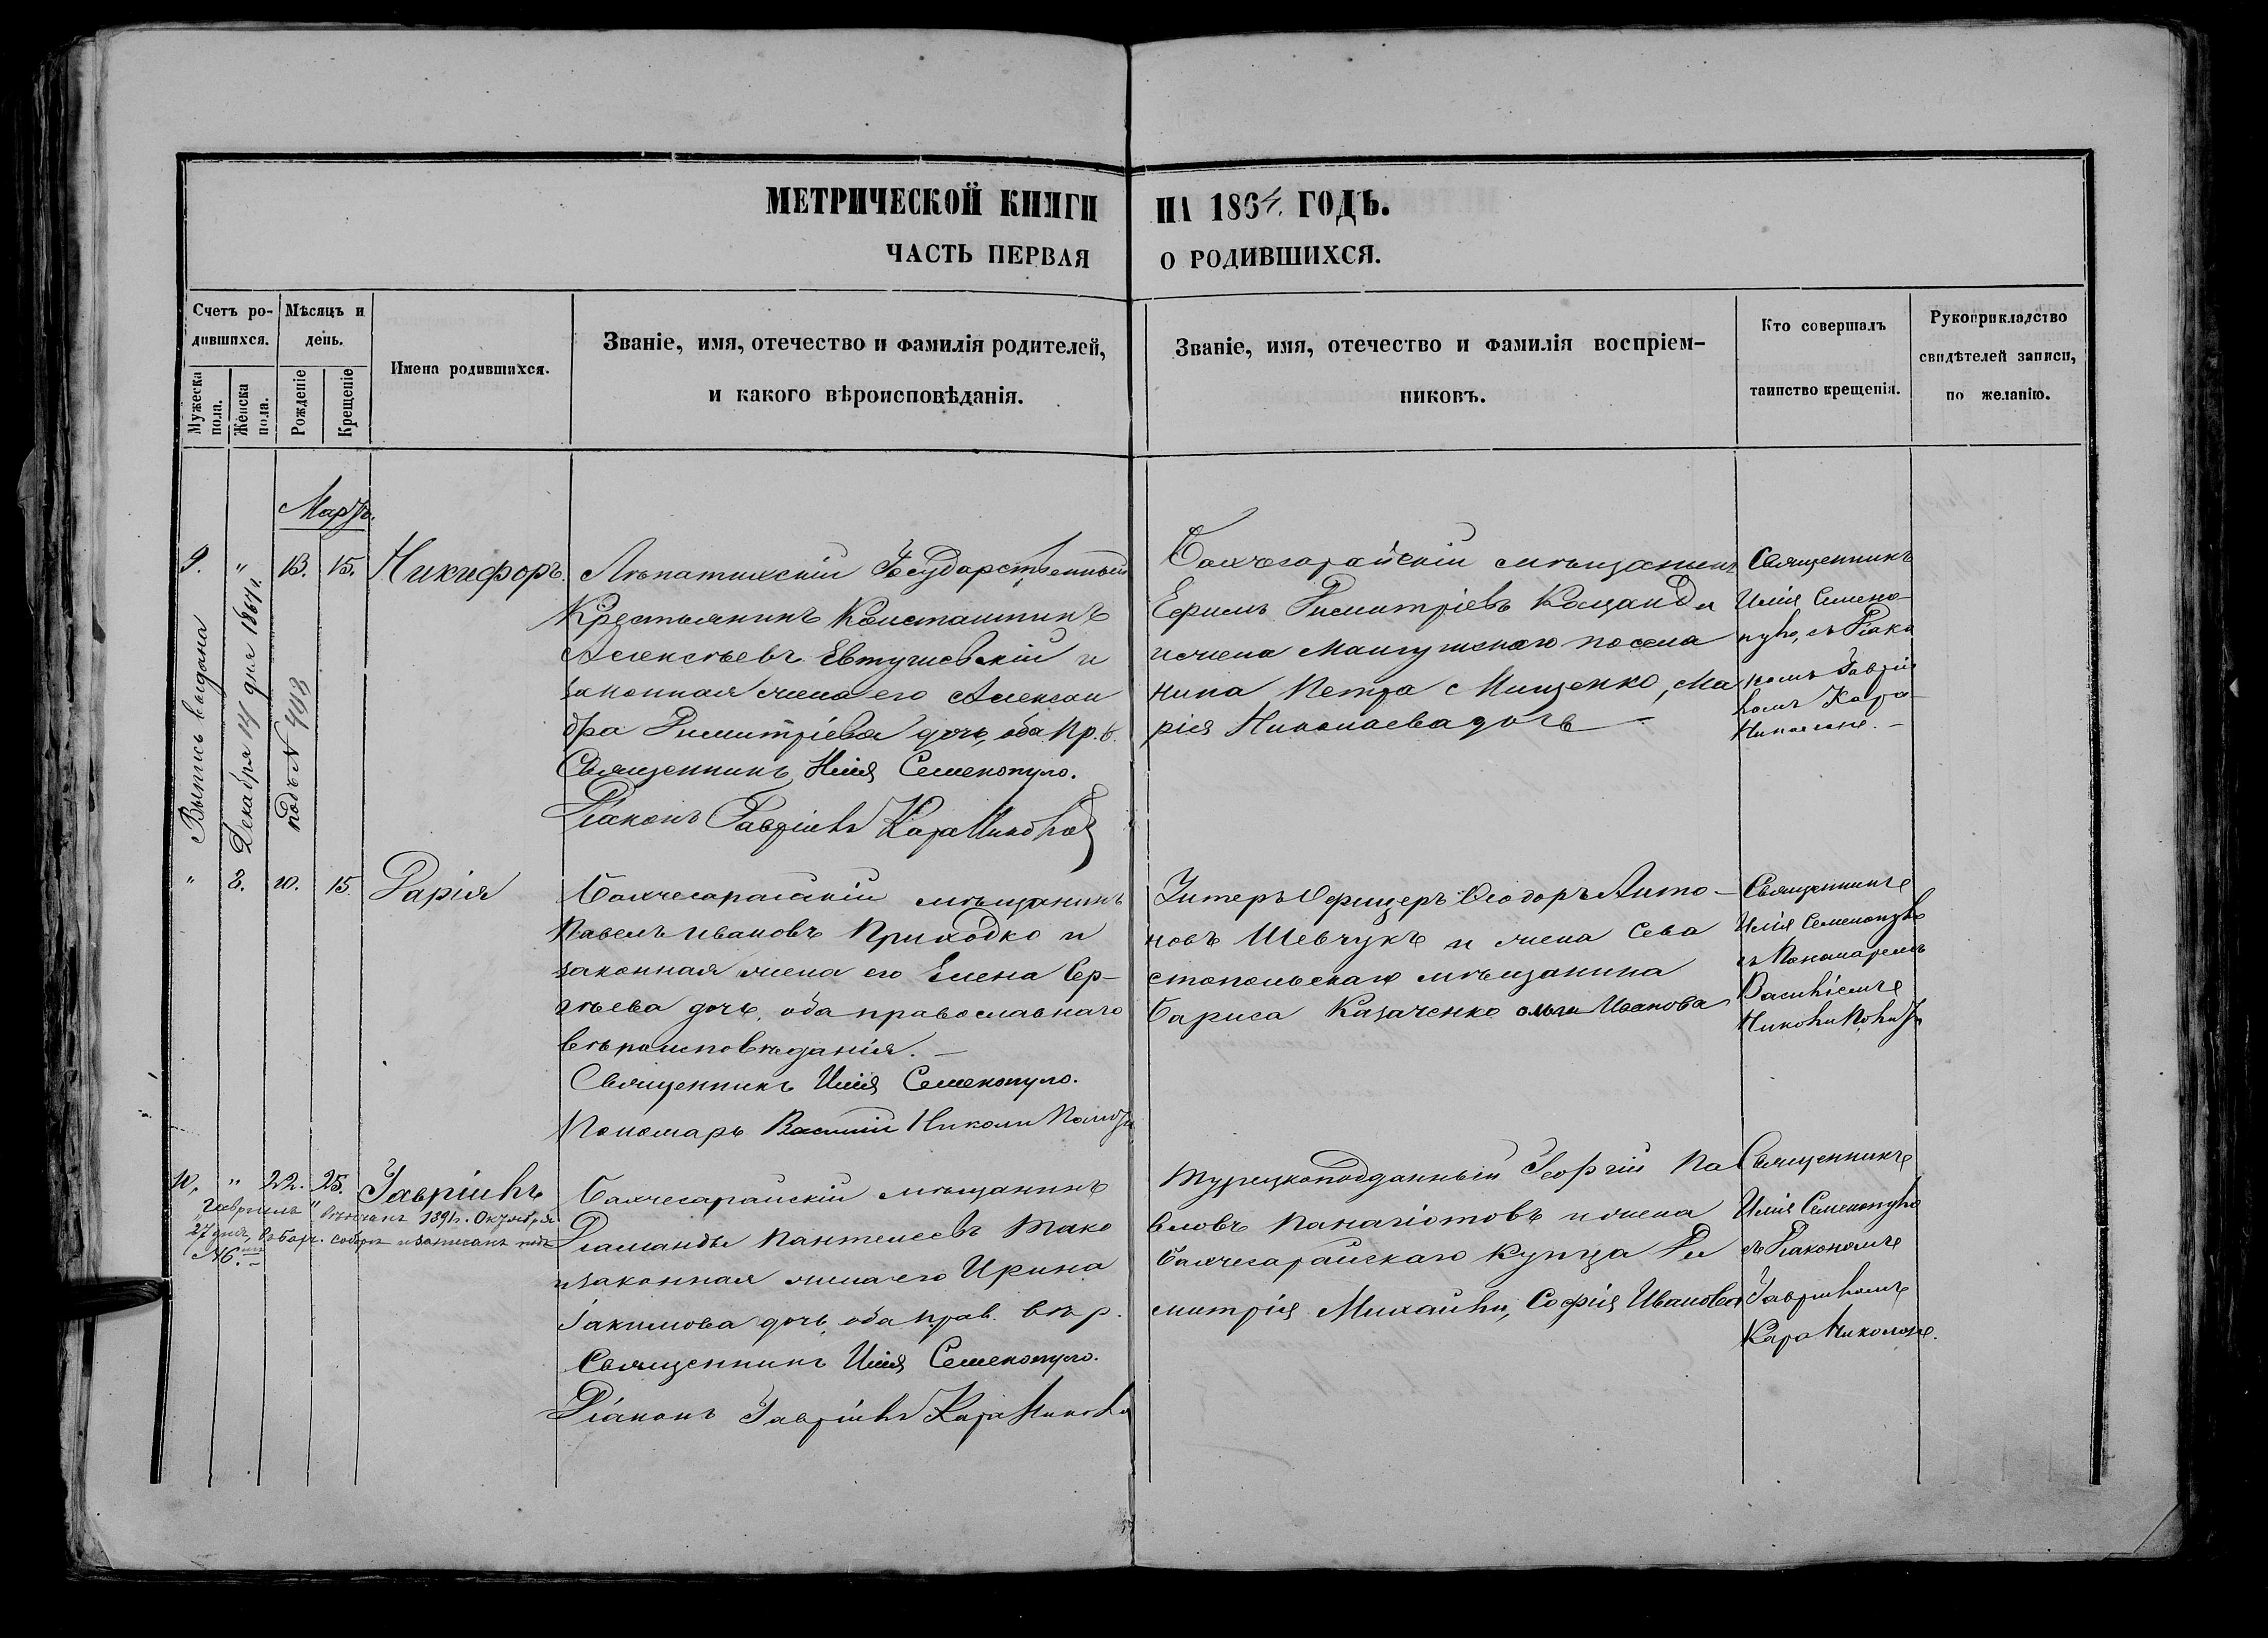 МЕТРИЧЕСКОЙ КНИГИ НА 1864. ГОДЪ.
ЧАСТЬ ПЕРВАЯ О РОДИВШИХСЯ.
Счетъ ро-
дившихся.
Мужеска пола.
Женска пола.
Мѣсяцъ и
день.
Рожденіе
Крещеніе
Имена родившихся.
Званіе, имя, отечество и фамилія родителей,
и какого вѣроисповѣданія.
Званіе, имя, отечество и фамилія воспріем-
никовъ.
Кто совершалъ
таинство крещенія.
Рукоприкладство
свидѣтелей записи,
по желанію.
Мартъ.
9. " 13. 15. Никифоръ.
Выпись выдана
Декабря 14 дня 1864 г.
подъ N 408
Государственный
Крестьянинъ Константинъ
Алексѣевъ Евтушевскій и
законная жена его Алексан
дра Димитріева дочь, оба пр. в.
Священникъ Илія Семенопуло.
Діаконъ Гавріилъ КараНикола
Бахчесарайскій мѣщанинъ
Ефимъ Димитріевъ
и жена Мангушскаго посела
нина Петра Мищенко, Ма
рія Николаева дочь
Священникъ
Илія Семено-
пуло, съ Діако
номъ Гаврій
ломъ Кара-
Николою.
" 8. 10. 15. Дарія
Бахчесарайскій мѣщанинъ
Павелъ Ивановъ Приходко и
законная жена его Елена Сер-
гѣева дочь, оба православнаго
вѣроисповѣданія.
Священникъ Илія Семенопуло.
Пономарь Василій Николи
Унтеръ Офицеръ Ѳеодоръ Анто-
новъ Шевчукъ и жена Сева
стопольскаго мѣщанина
Бариса Казаченко Ольги Иванова
Священникъ
Илія Семенопуло
съ Пономаремъ
Василіемъ
10. " 22. 25. Гавріилъ
"Гавріилъ" вѣнчанъ 1891 г. Октября
27 дня, въ Бахч. соборѣ и записанъ подъ
№ 6.
Бахчесарайскій мѣщанинъ
Діаманды Пантелеевъ Тако
и законная жена его Ирина
Іакимова дочь, оба прав. вѣр.
Священникъ Илія Семенопуло.
Діаконъ Гавріилъ КараНикола
Турецкоподданный Георгій Па
вловъ Панагіотовъ и жена
Бахчесарайскаго Купца Ди
митрія Михайли, Софія Иванова
Священникъ
Илія Семенопуло
съ Діакономъ
Гавріиломъ
КараНиколою.